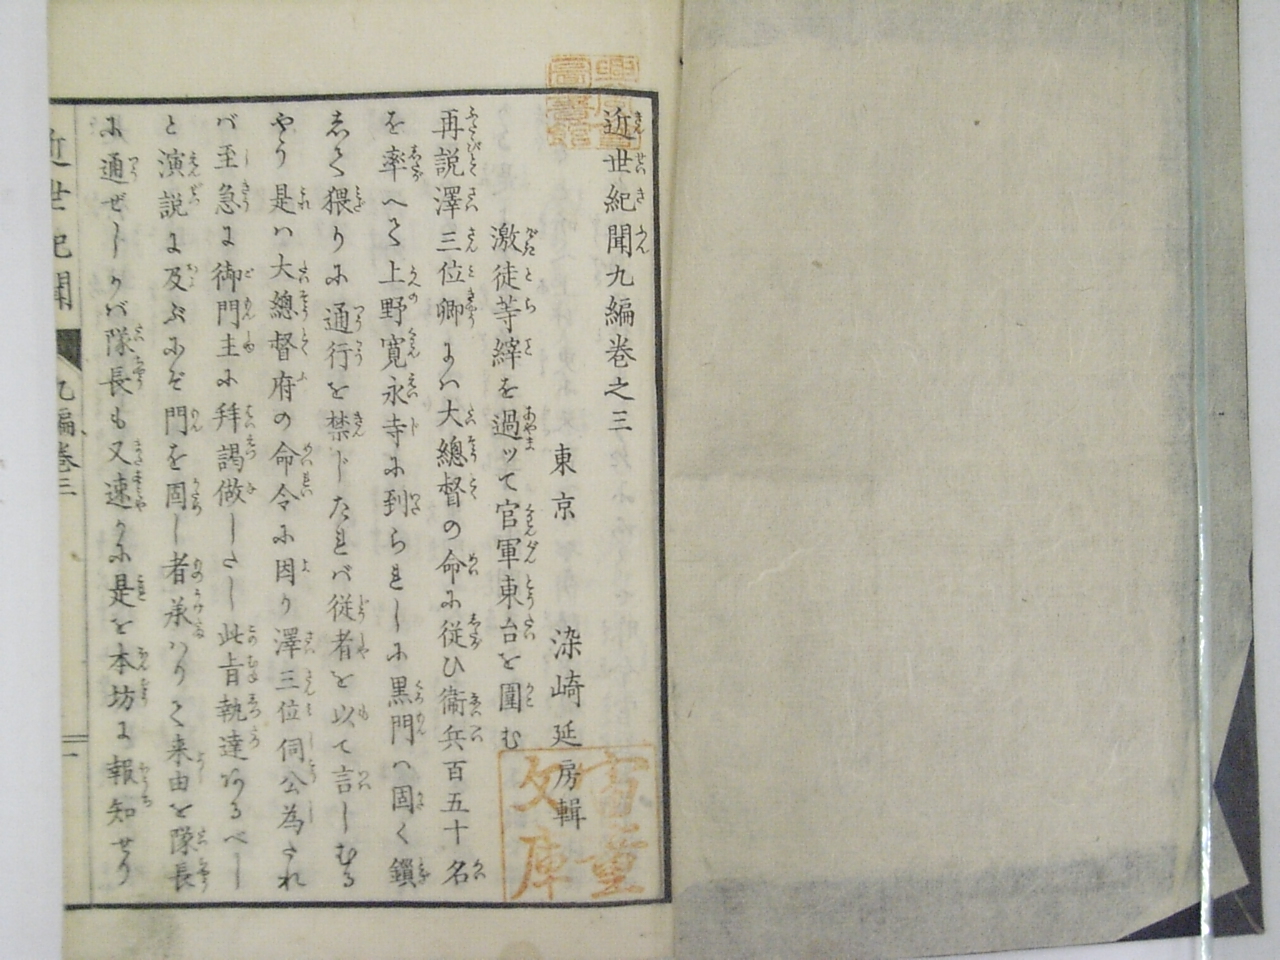 近世紀聞九編巻之三
東京 染崎延房輯
激徒等縡を過ッて官軍東台を圍む
再説澤三位卿には大總督の命に従ひ衞兵百五十名
を率へて上野寛永寺に到られしに黒門は固く鎖
して猥りに通行を禁じたれば従者を以て言しむる
やう是は大總督府の命令に因り澤三位伺公為され
ば至急に御門主に拜謁做したし此旨執達あるべし
と演説に及ぶにぞ門を固し者承はりて来由を隊長
に通ぜしかば隊長も又速かに是を本坊に報知せり
近世紀聞 九編巻三 一